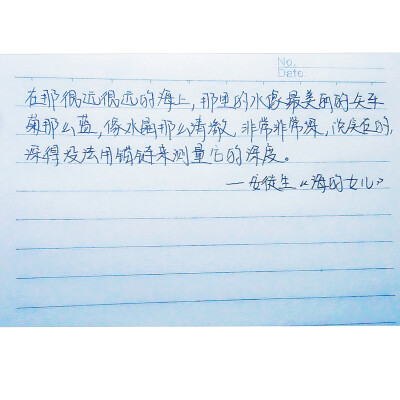 No.
Date:
在那很远很远的海上，那里的水像最美丽的矢车
菊那么蓝，像水晶那么清澈，非常非常深，说实在的，
深得没法用锚链来测量它的深度。
——安徒生《海的女儿》